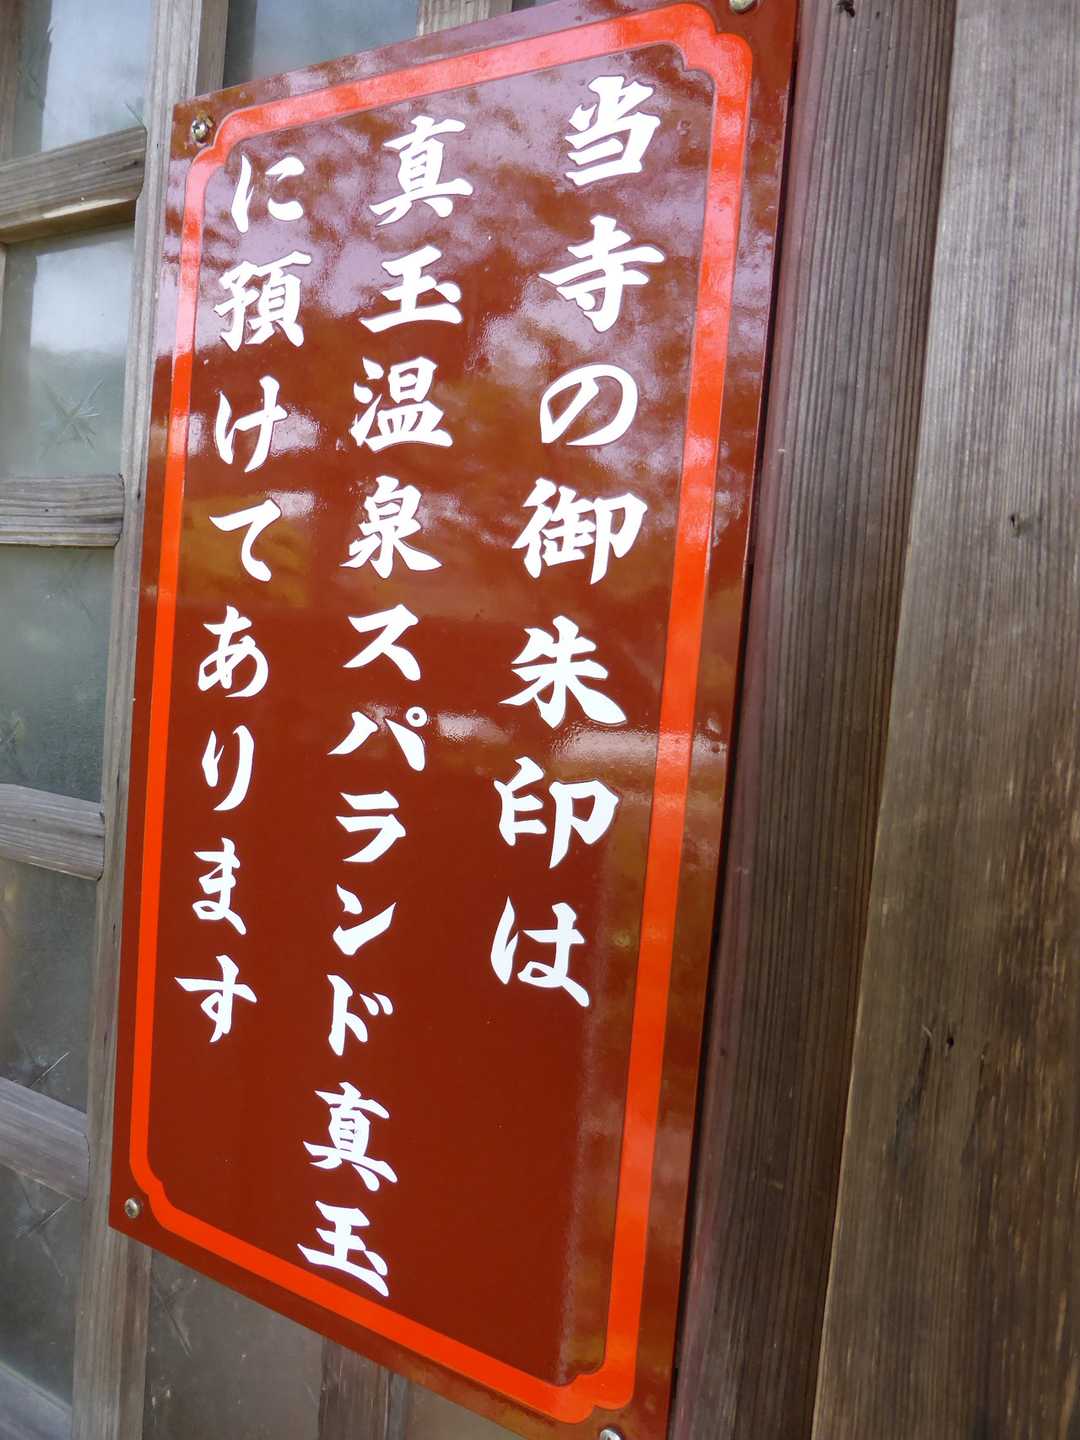 当寺の御朱印は
真玉温泉スパランド真玉
に預けてあります